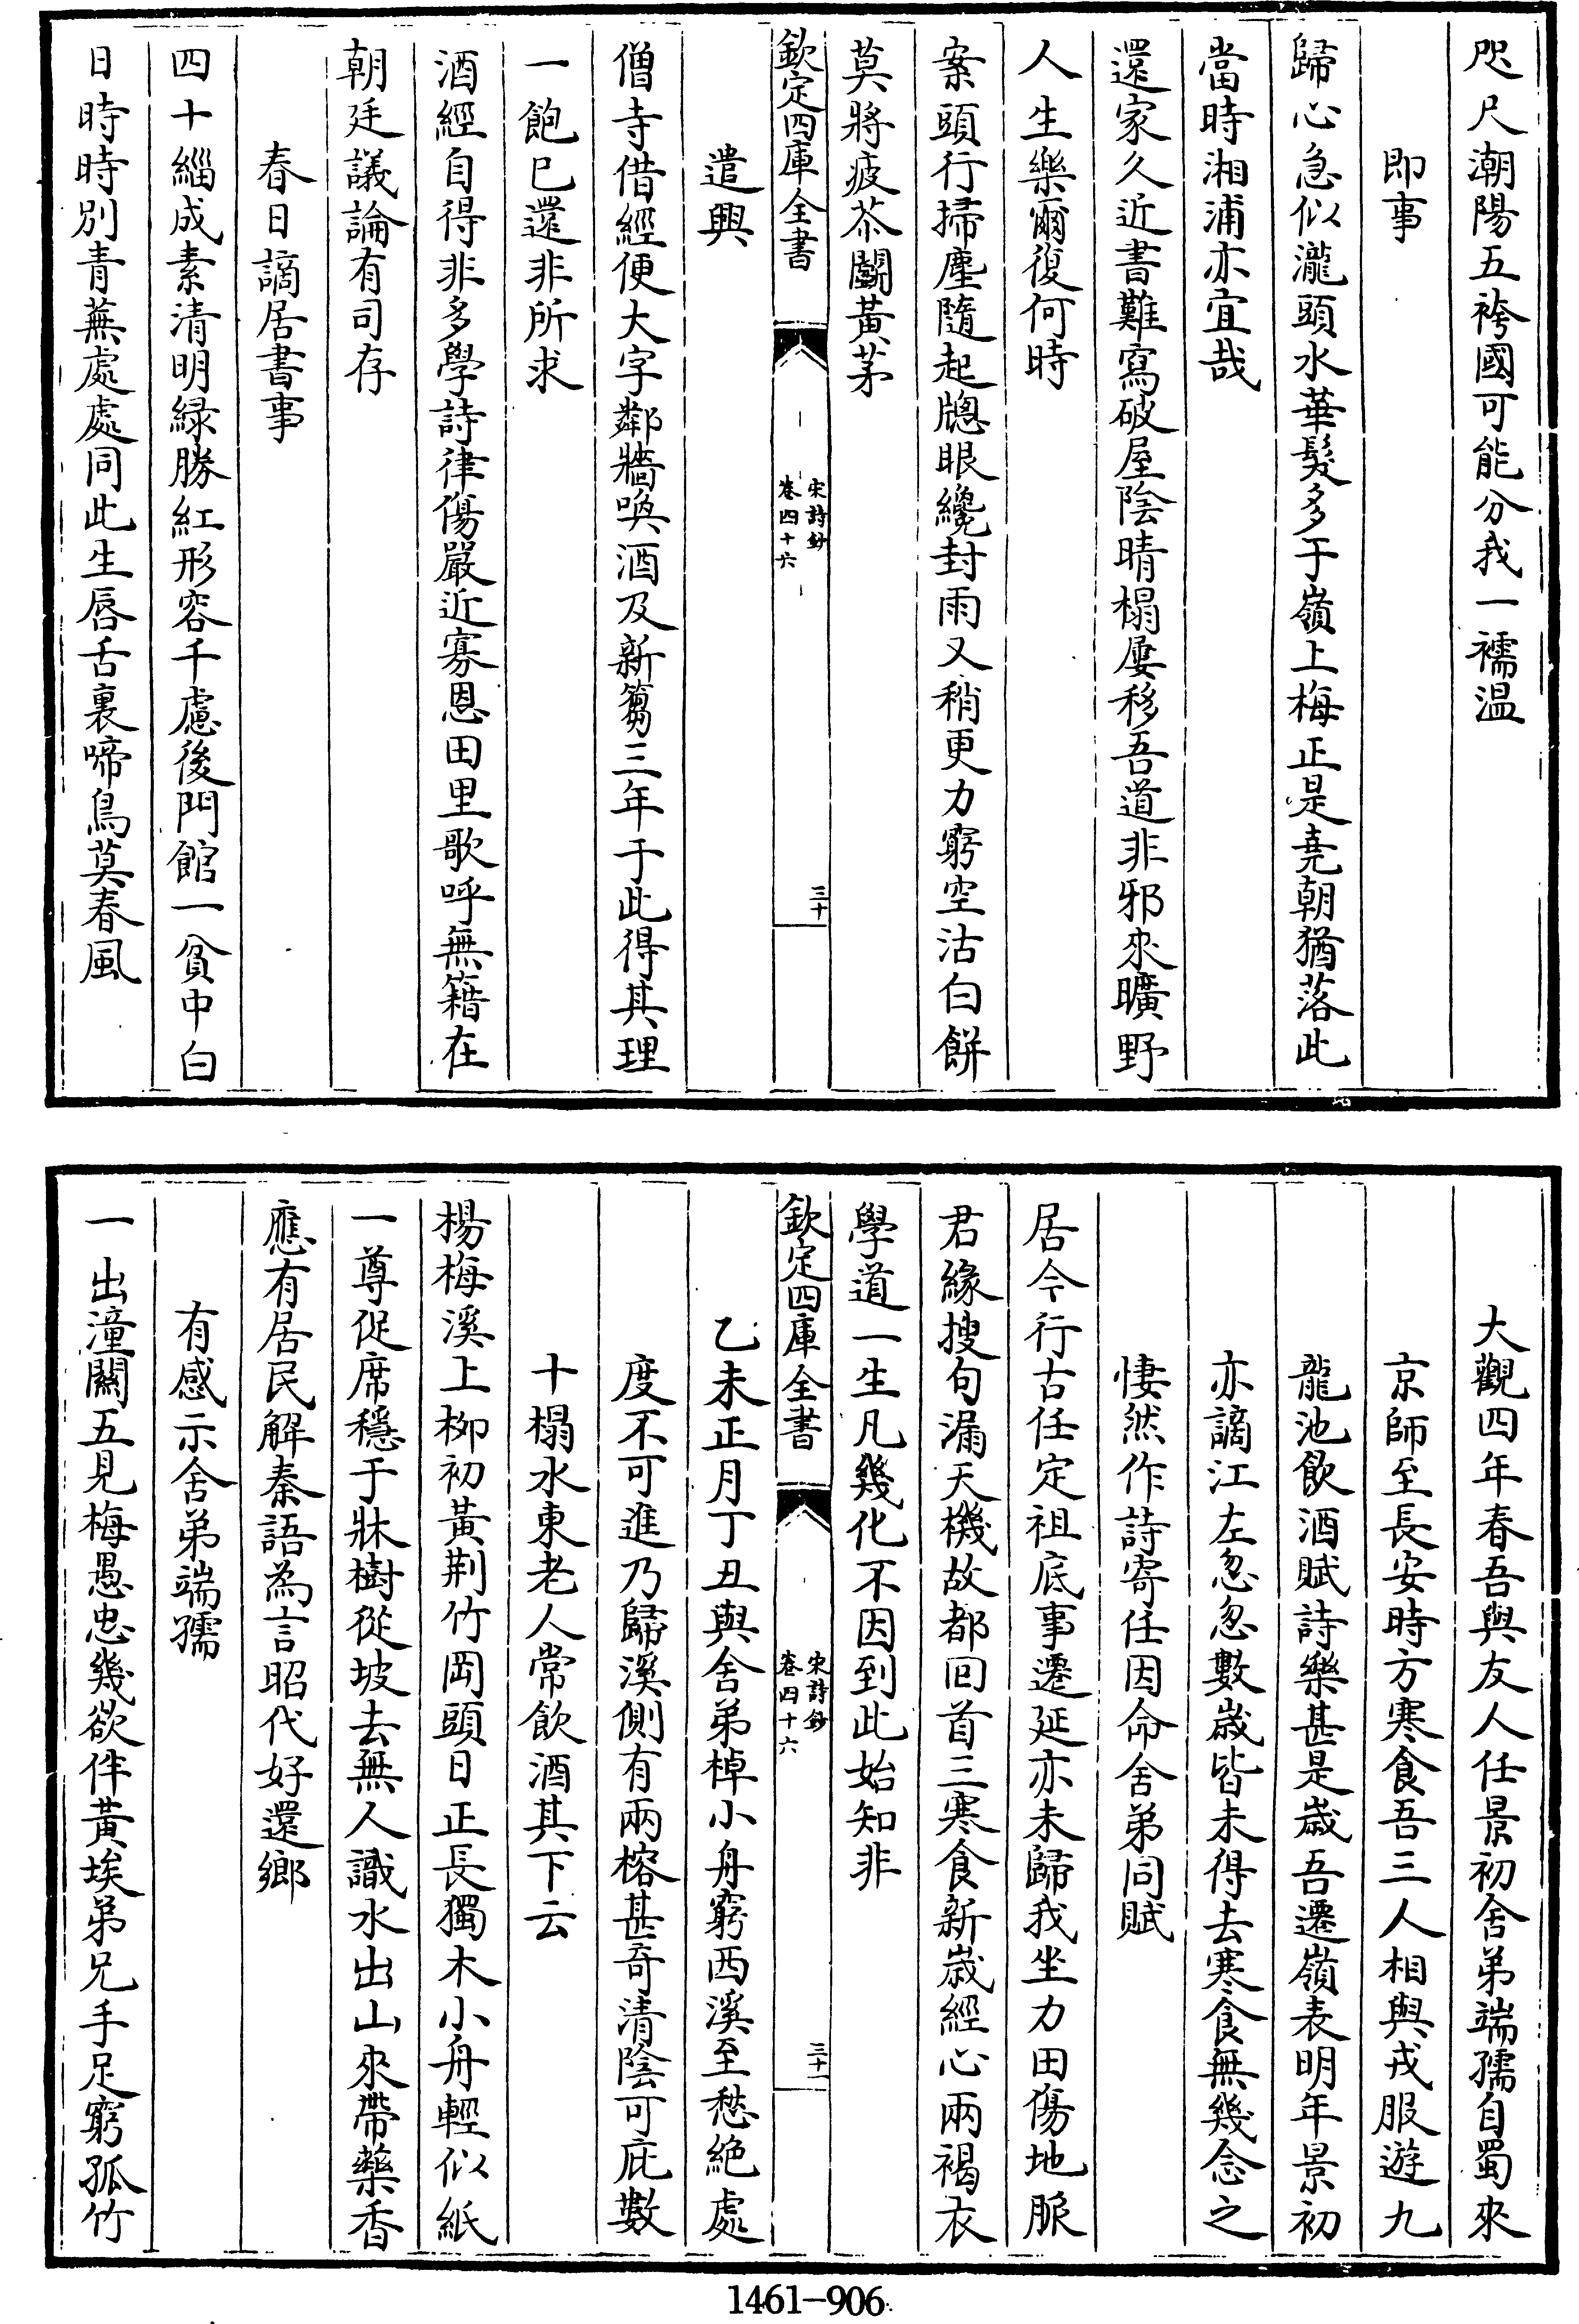 咫尺潮陽五袴國可能分我一襦温
即事
歸心急似瀧頭水華髮多于嶺上梅正是堯朝猶落此
當時湘浦亦宜哉
還家久近書難寫破屋陰晴榻屢移吾道非邪來曠野
人生樂爾復何時
案頭行掃塵隨起牎眼纔封雨又稍更力窮空沽白餅
莫將疲苶鬭黃茅
欽定四庫全書
宋詩鈔
卷四十六
三十
遣興
僧寺借經便大字鄰牆喚酒及新篘三年于此得其理
一飽已還非所求
酒經自得非多學詩律傷嚴近寡恩田里歌呼無籍在
朝廷議論有司存
春日謫居書事
四十緇成素清明緑勝紅形容千慮後門館一貧中白
日時時別青蕪處處同此生唇舌裏啼鳥莫春風
大觀四年春吾與友人任景初舍弟端孺自蜀來
京師至長安時方寒食吾三人相與戎服遊九
龍池飲酒賦詩樂甚是歲吾遷嶺表明年景初
亦謫江左忽忽數歲皆未得去寒食無幾念之
悽然作詩寄任因命舍弟同賦
居今行古任定祖底事遷延亦未歸我坐力田傷地脈
君緣搜句漏天機故都回首三寒食新歲經心兩褐衣
學道一生凡幾化不因到此始知非
欽定四庫全書
宋詩鈔
卷四十六
三十一
乙未正月丁丑與舍弟棹小舟窮西溪至愁絕處
度不可進乃歸溪側有兩榕甚奇清陰可庇數
十榻水東老人常飲酒其下云
楊梅溪上柳初黃荆竹岡頭日正長獨木小舟輕似紙
一尊促席穩于牀樹從坡去無人識水出山來帶藥香
應有居民解秦語為言昭代好還鄉
有感示舍弟端孺
一出潼關五見梅愚忠幾欲伴黃埃弟兄手足窮孤竹
1461-906